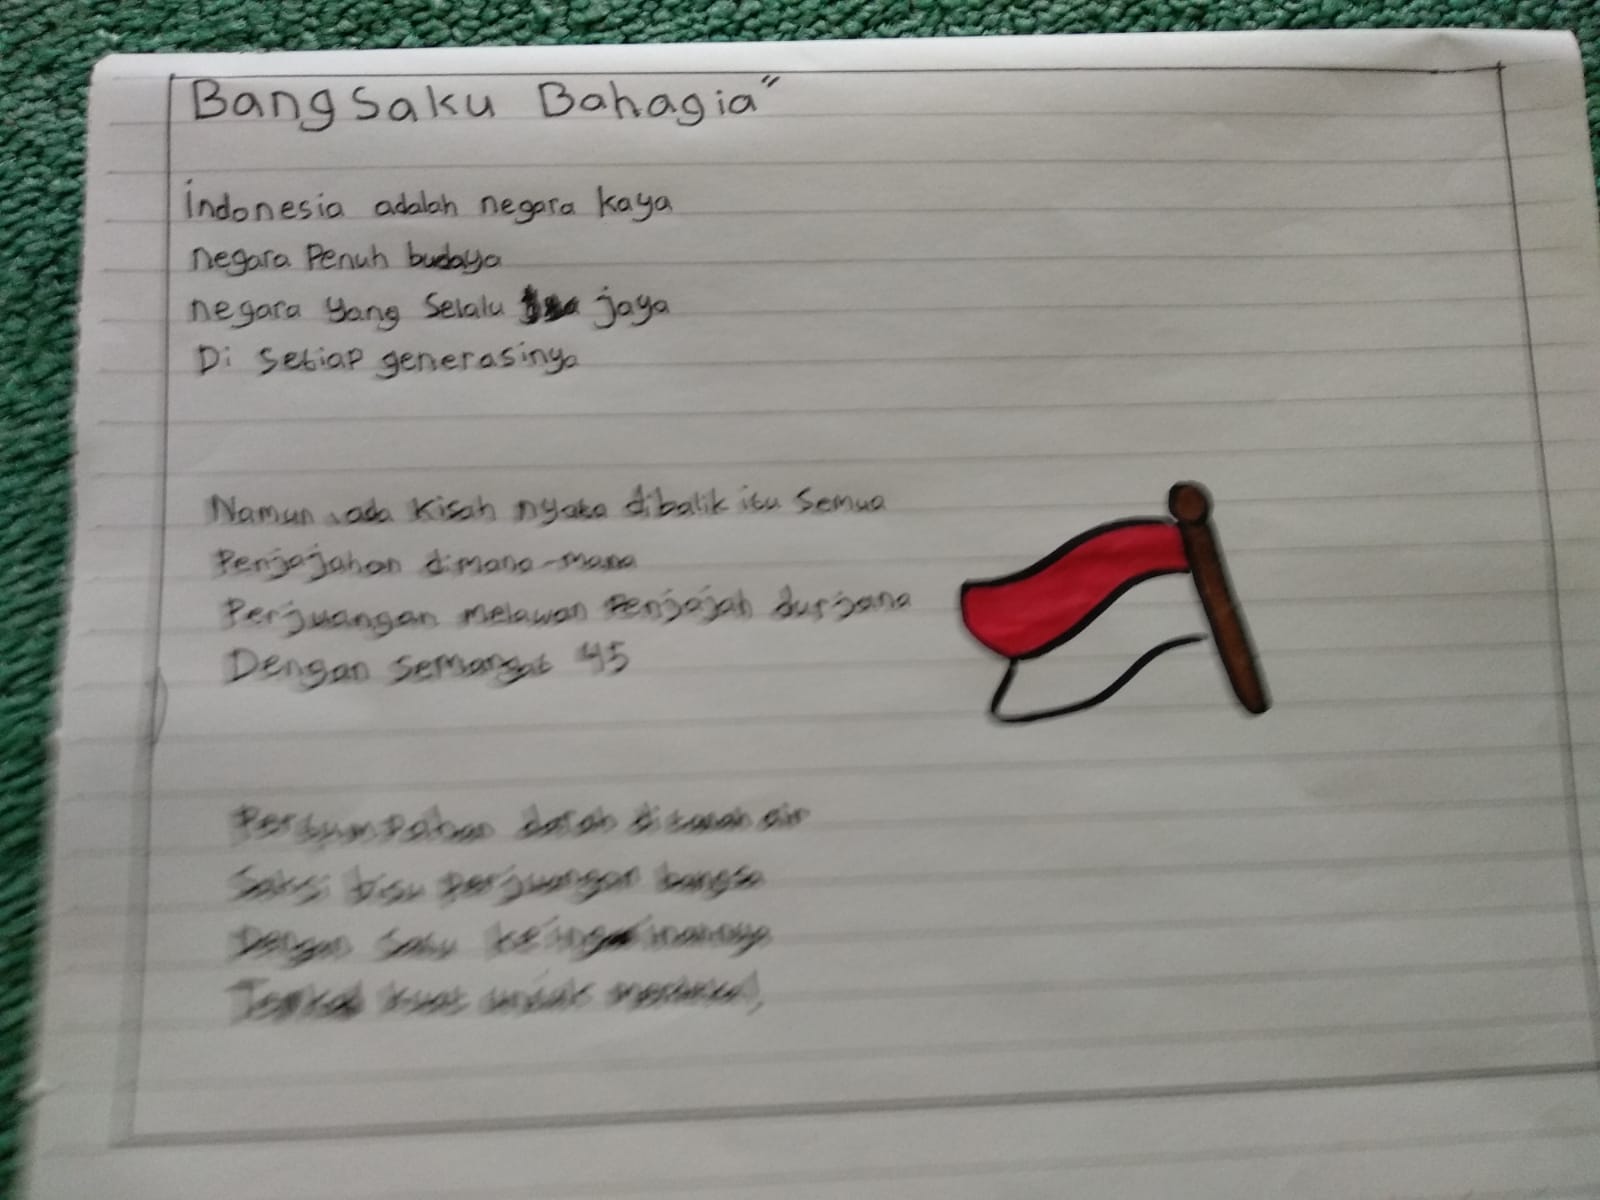 Bangsaku Bahagia"
indonesia adalah negara kaya
negara Penuh budaya
negara yang Selalu jaya
Di setiap generasinya
Namun, ada Kisah nyata dibalik itu Semua
Penjajahan dimana-mana
Perjuangan melawan Penjajah durjana
Dengan semangat 45
Pertumpahan darah ditanah air
Saksi bisu perjuangan bangsa
Dengan Satu keinginannya
Tekad kuat untuk merdeka,